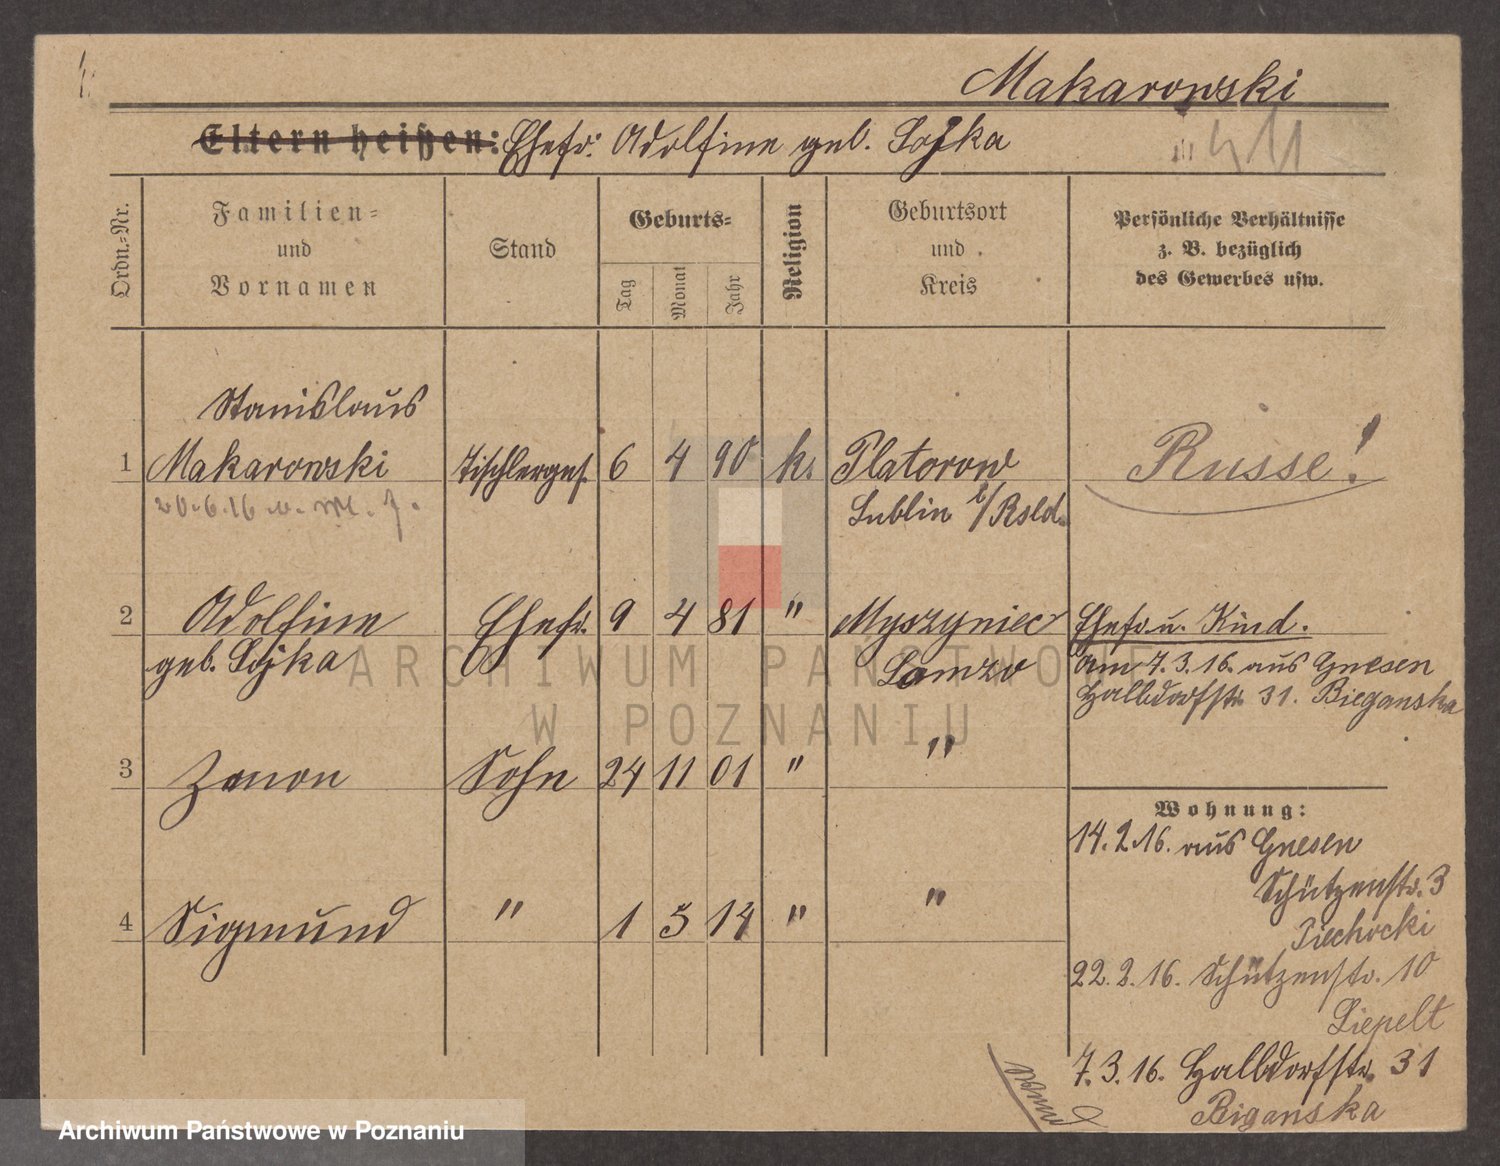 Makarowski
Eltern heißen: Ehefr. Adolfine geb. Sojka
Ordn.-Nr.
Familien-
und
Vornamen
Stand
Geburts-
Tag
Monat
Jahr
Religion
Geburtsort
und
Kreis
Persönliche Verhältnisse
z. B. bezüglich
des Gewerbes usw.
Stanislaus
1 Makarowski Tischlerges. 6 4 90 k. Platorow Russe!
20.6.16
Lublin i/Rsld.
2 Adolfine Ehefr. 9 4 81 " Myszyniec Ehefr. u. Kind.
geb. Sojka Lomza am 7.3.16. aus Gnesen
Halbdorfstr. 31. Bieganska
3 Zenon Sohn 24 11 01 " "
Wohnung:
14.2.16. aus Gnesen
Schützenstr. 3
Piechocki
4 Sigmund " 1 5 14 " "
22.2.16. Schützenstr. 10
Liepelt
7.3.16. Halbdorfstr. 31
Biganska
ARCHIWUM PAŃSTWOWE
W POZNANIU
Archiwum Państwowe w Poznaniu